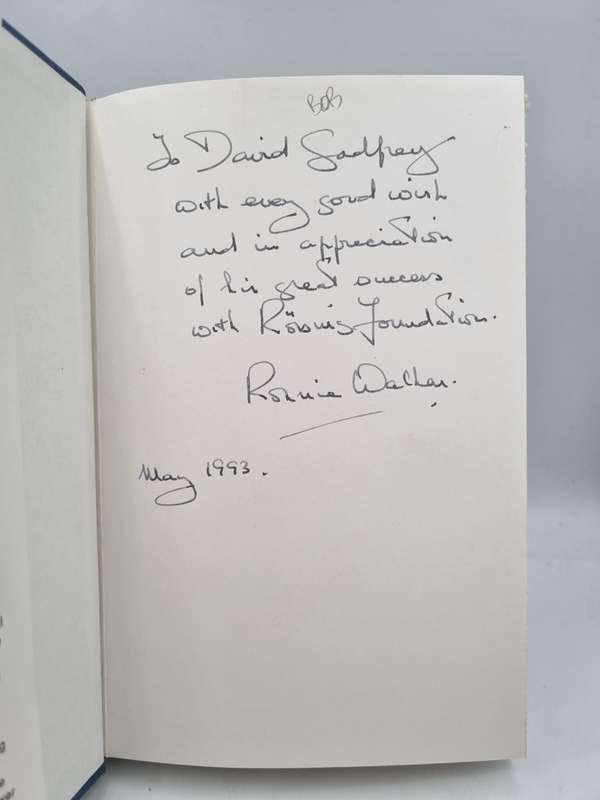 BOB
To David Godfrey
with every good wish
and in appreciation
of his great success
with Rössing Foundation.
Ronnie Walker.
May 1993.